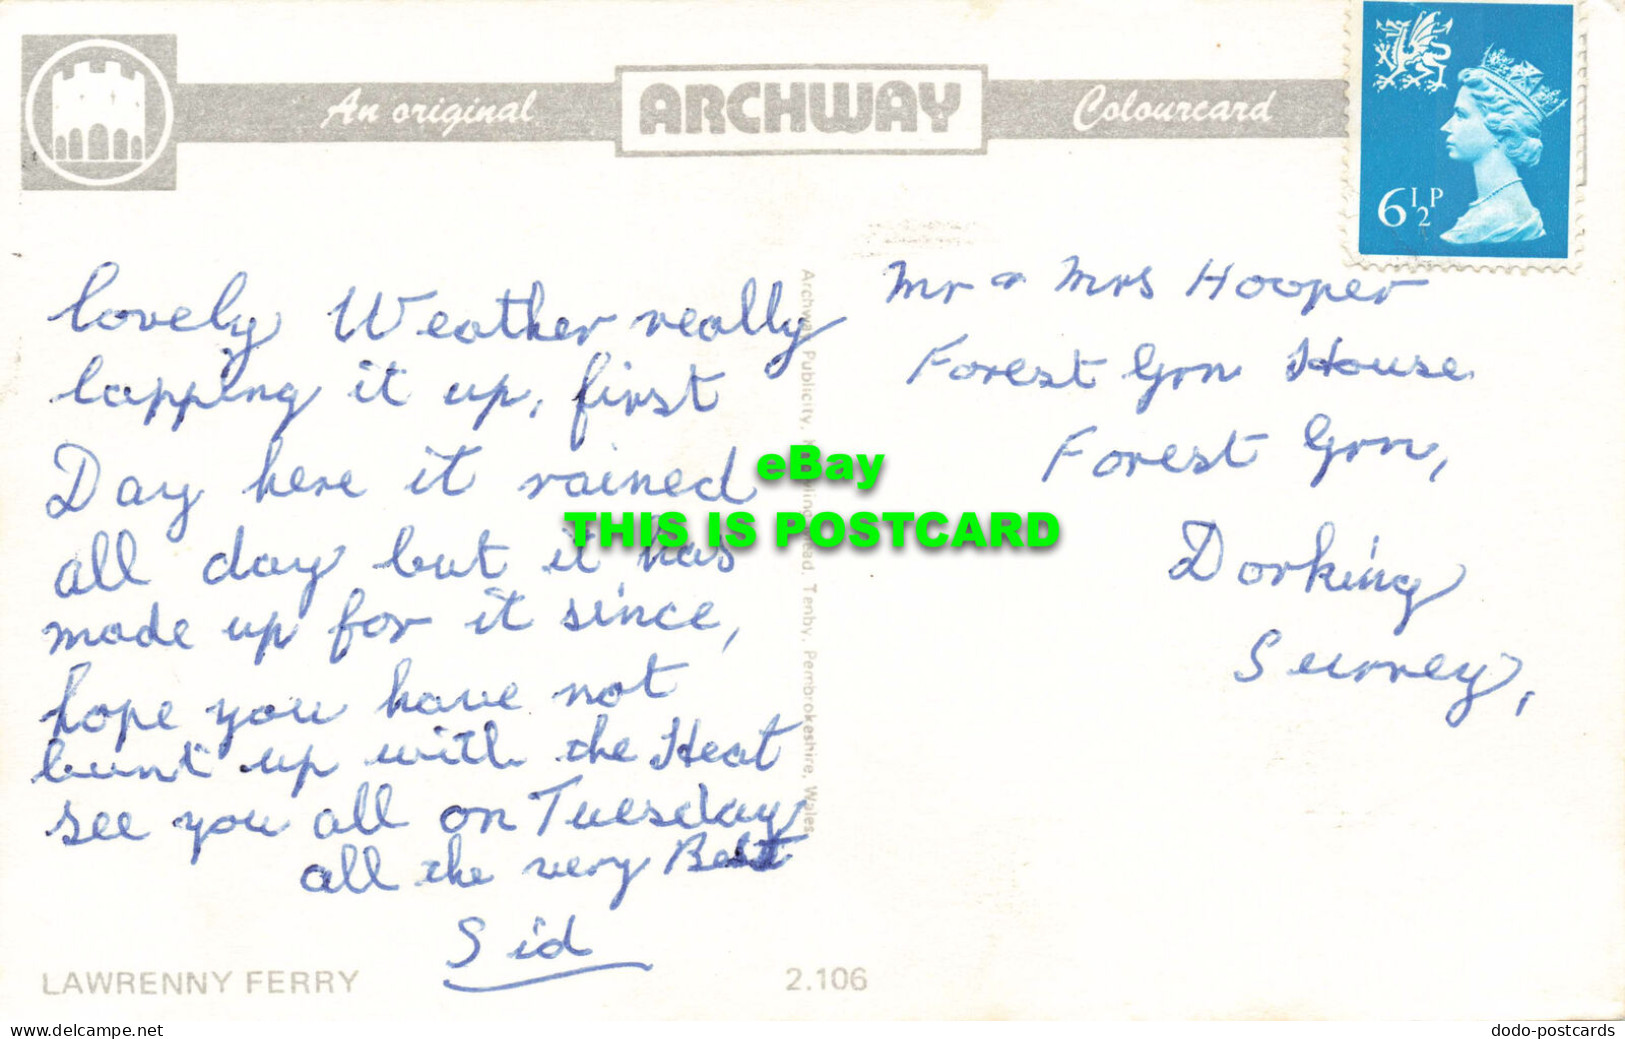 An original ARCHWAY Colourcard
6½P
lovely Weather really
lapping it up, first
Day here it rained
all day but it has
made up for it since,
hope you have not
burnt up with the Heat
see you all on Tuesday
all the very Best
Sid
Mr & Mrs Hooper
Forest Grn House
Forest Grn,
Dorking
Surrey,
Archway Publicity, Tenby, Pembrokeshire, Wales
eBay
THIS IS POSTCARD
LAWRENNY FERRY
2.106
www.delcampe.net
dodo-postcards